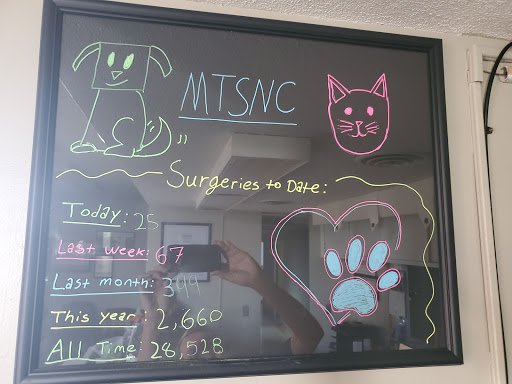 MTSNC
Surgeries to Date:
Today: 25
Last week: 67
Last month: 344
This year: 2,660
All Time: 28,528